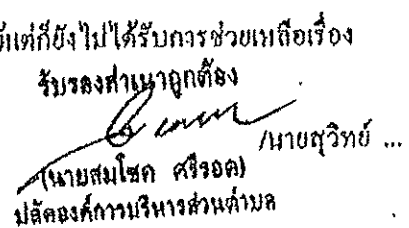 แต่ก็ยังไม่ได้รับการช่วยเหลือเรื่อง
รับรองสำเนาถูกต้อง
/นายสุวิทย์ ...
(นายสมโชค ศรีรอด)
ปลัดองค์การบริหารส่วนตำบล